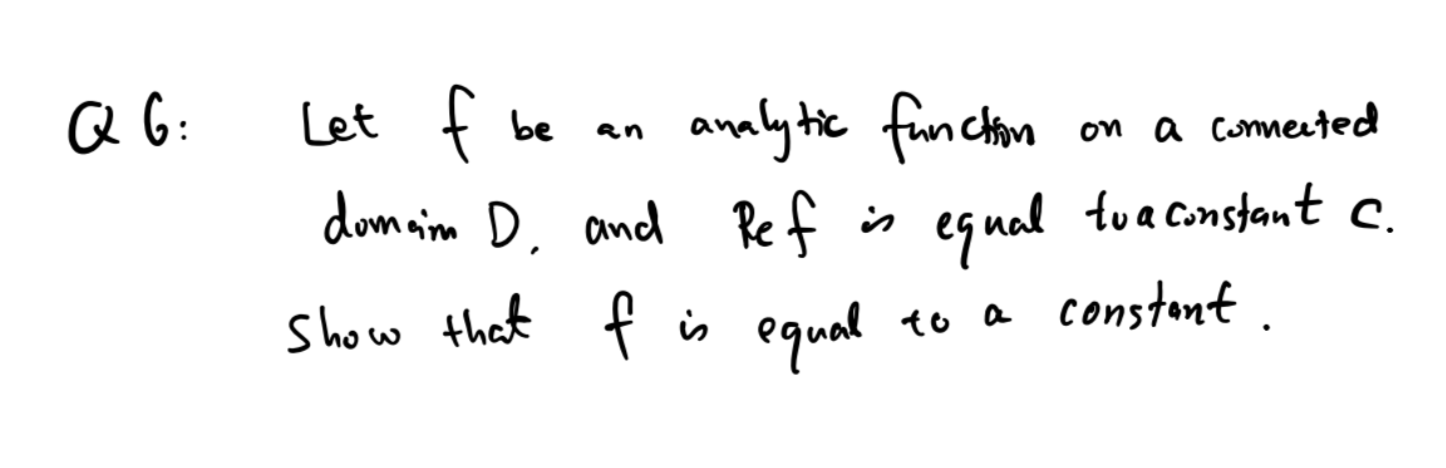 Q6: Let f be an analytic function on a connected
domain D, and Re f is equal to a constant C.
Show that f is equal to a constant.